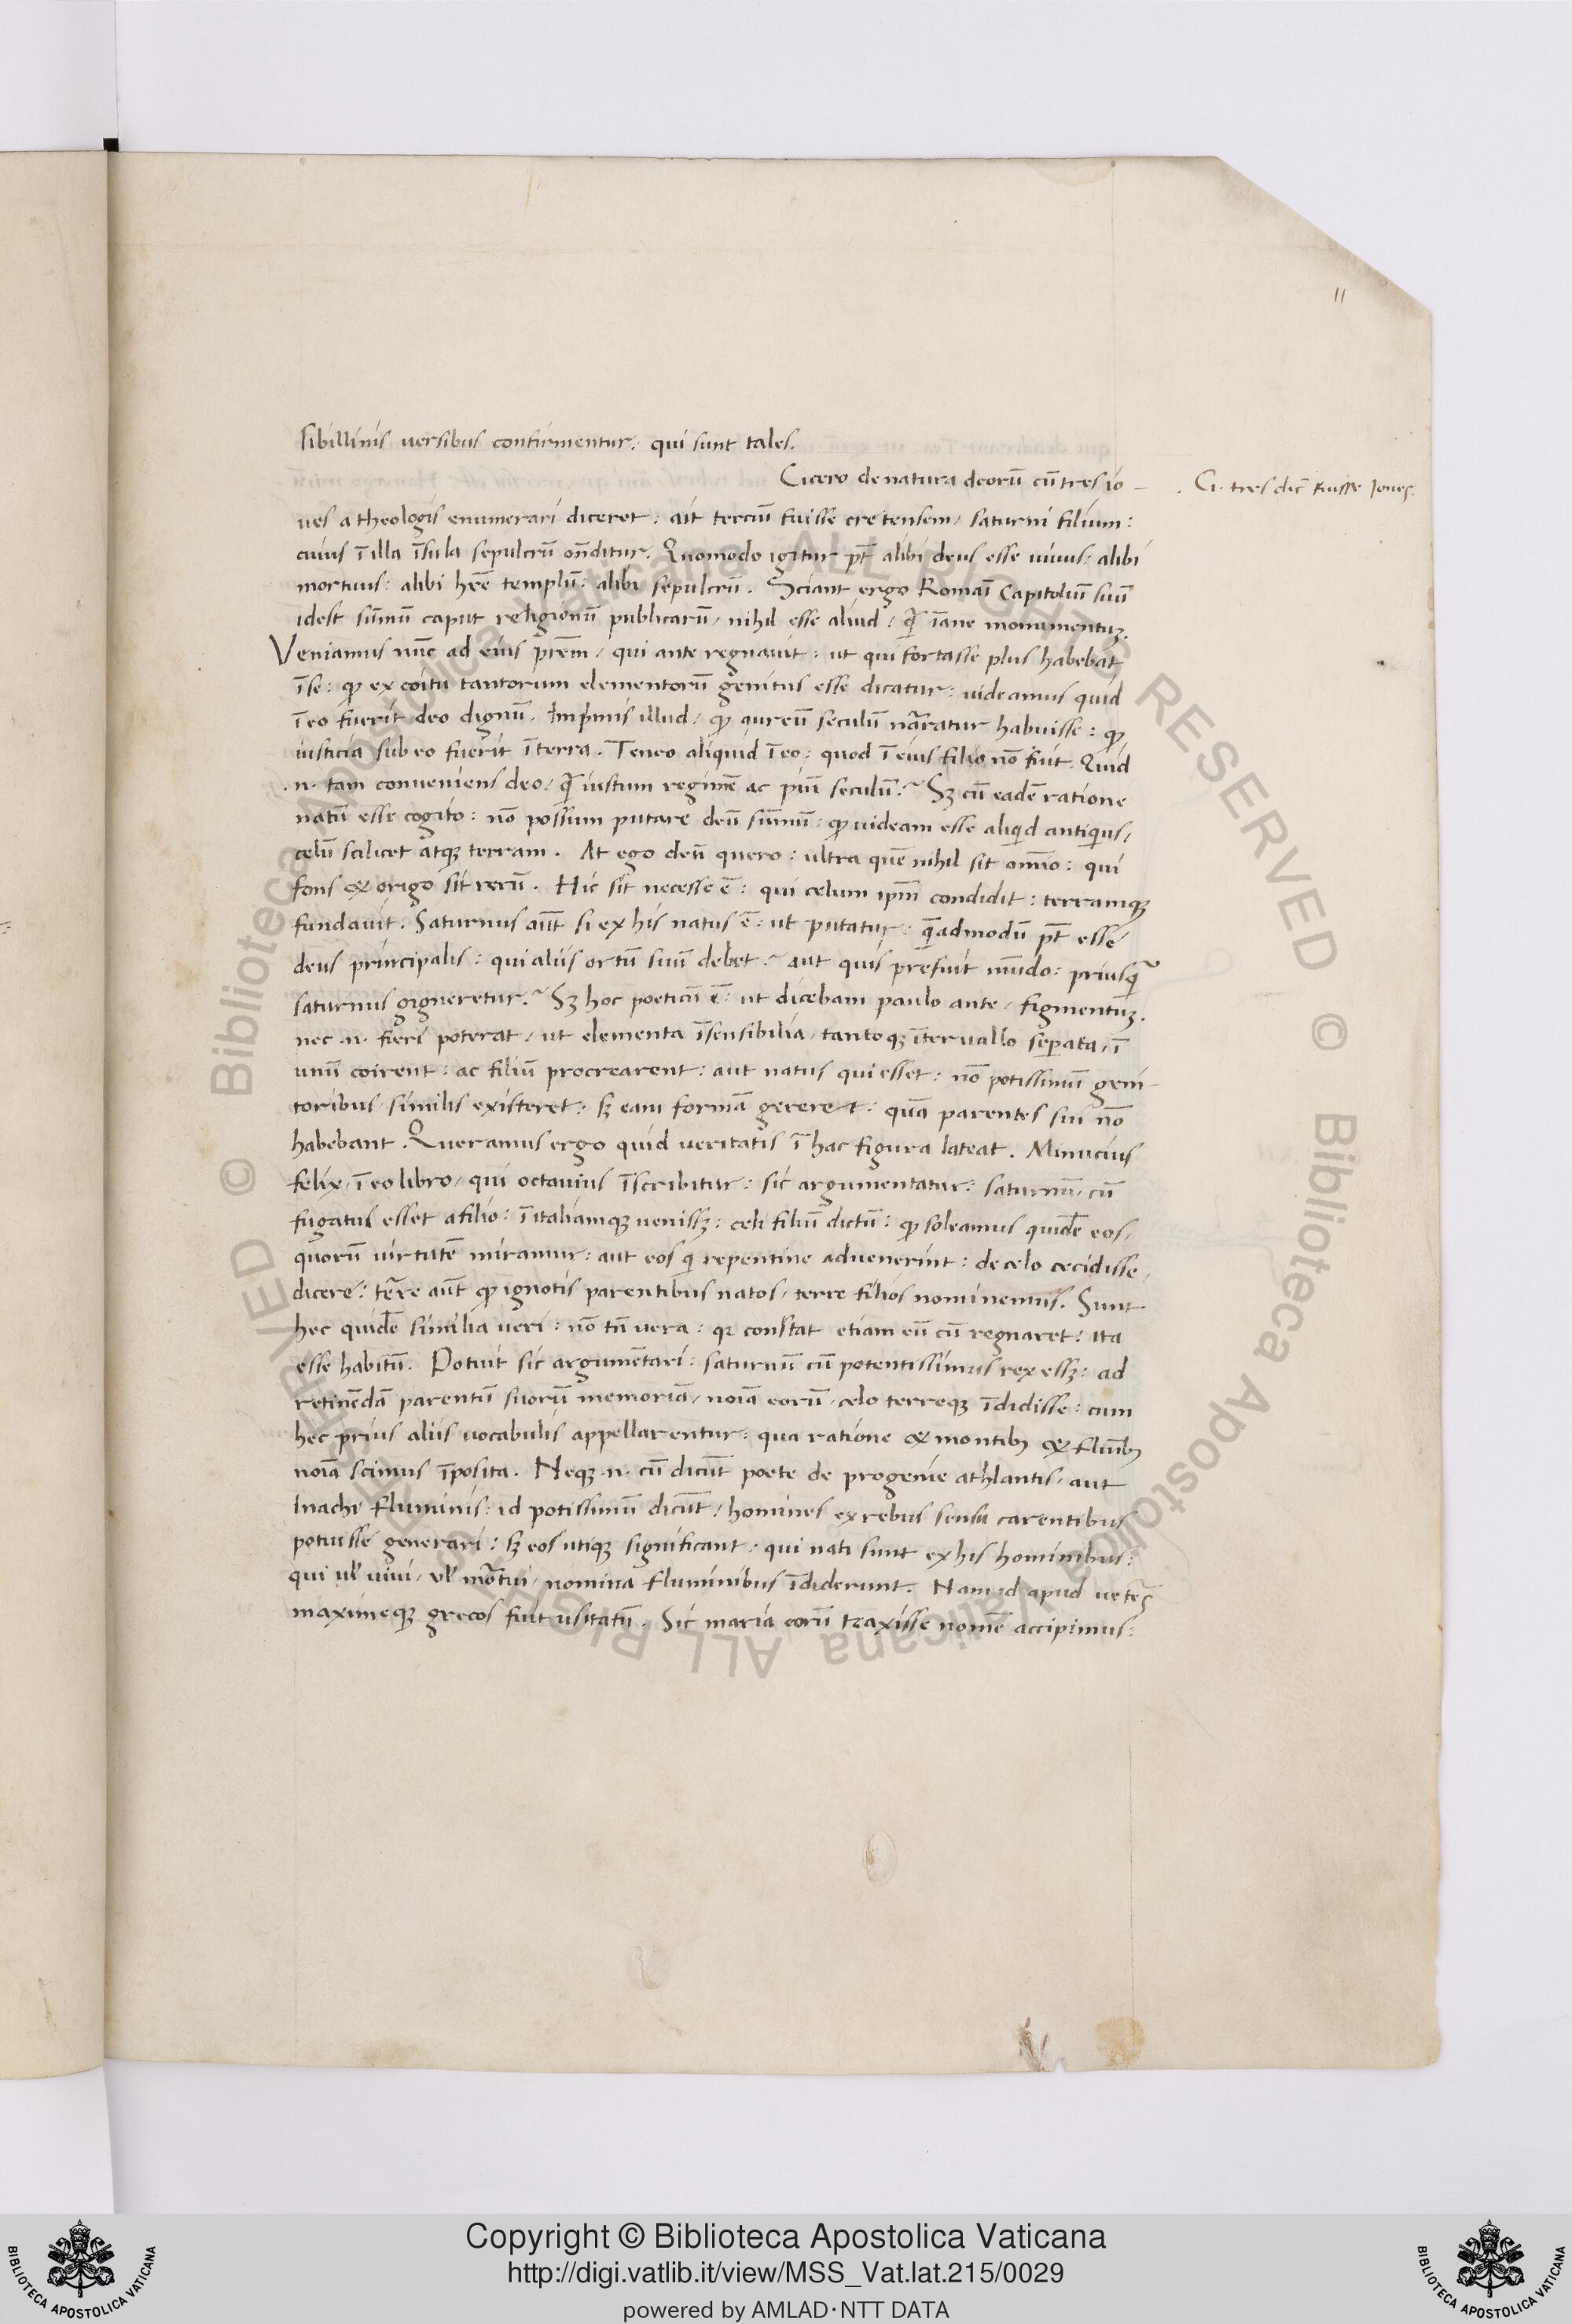 11
sibillinis versibus confirmentur: qui sunt tales.
Cicero de natura deorū cū tres io-
. Ci. tres dic̄ fuisse Ioues.
ues a theologis enumerari diceret: ait terciū fuisse cretensem, saturni filium:
cuius ī illa īsula sepulcrū ōnditur. Quomodo igitur pt̄ alibi deus esse uiuus: alibi
mortuus: alibi hr̄e templū: alibi sepulcrū. Sciant ergo Romaī Capitoliū suū
idest sūmū caput religionū publicarū, nihil esse aliud, qꝫ̄ īane monumentuꝫ.
Veniamus nūc ad eius pr̄em, qui ante regnauit: ut qui fortasse plus habebat
ī se: ꝙ ex coitu tantorum elementorū genitus esse dicatur: uideamus quid
ī eo fuerit deo dignū. Inpͥmis illud, ꝙ aureū seculū narratur habuisse: ꝙ
iusticia sub eo fuerit ī terra. Teneo aliquid ī eo: quod ī eius filio nō fuit. Quid
.n. tam conueniens deo, qꝫ̄ iustum regimē ac piū seculū? Sꝫ cū eadē ratione
natū esse cogito: nō possum putare deū sūmū: ꝙ uideam esse aliqͥd antiqͥus,
celū scilicet atqꝫ terram. At ego deū quero: ultra quē nihil sit om̄io: qui
fons & origo sit rerū. Hic sit necesse ē: qui celum ipm̄ condidit: terramqꝫ
fundauit. Saturnus aūt si ex his natus ē: ut putatur: quēadmodū pt̄ esse
deus principalis: qui aliis ortū suū debet? aut quis prefuit mūdo: priusqꝫ̄
saturnus gigneretur? Sꝫ hoc poeticū ē: ut dicebam paulo ante, figmentuꝫ.
nec .n. fieri poterat, ut elementa īsensibilia, tantoqꝫ īteruallo separata, ī
unū coirent: ac filiū procrearent: aut natus qui esset: nō potissimū geni-
toribus similis existeret: sꝫ eam formā gereret: quā parentes sui nō
habebant. Queramus ergo quid ueritatis ī hac figura lateat. Minucius
felix, ī eo libro, qui octauius īscribitur: sic argumentatur: saturnū, cū
fugatus esset a filio: ī italiamqꝫ uenissꝫ: celi filiū dictū: ꝙ soleamus quidē eos,
quorū uirtutē miramur: aut eos qͥ repentine aduenerint: de celo cecidisse,
dicere: terre aūt ꝙ ignotis parentibus natos, terre filios nominemus. Sunt
hec quidē similia ueri: nō tn̄ uera: qꝛ constat etiam eū cū regnaret: ita
esse habitū. Potuit sic argumētari: saturnū cū potentissimus rex essꝫ: ad
retinēdā parentū suorū memoriā, noīa eorū, celo terreqꝫ īdidisse: cum
hec prius aliis uocabulis appellarentur: qua ratione & montibꝫ & fluībꝫ
noīa scimus īposita. Neqꝫ .n. cū dicūt poete de progenie athlantis, aut
Inachi fluminis: id potissimū dicūt, homines ex rebus sensu carentibus
potuisse generari: sꝫ eos utiqꝫ significant, qui nati sunt ex his hominibus:
qui ul̄ uiui, ul̄ mortui, nomina fluminibus īdiderunt. Nam id apud uetes̄
maximeqꝫ grecos fuit usitatū. Sic maria eorū traxisse nomē accipimus:
© Biblioteca Apostolica Vaticana ALL RIGHTS RESERVED © Biblioteca Apostolica Vaticana ALL RIGHTS RESERVED
Copyright © Biblioteca Apostolica Vaticana
http://digi.vatlib.it/view/MSS_Vat.lat.215/0029
powered by AMLAD·NTT DATA
BIBLIOTECA APOSTOLICA VATICANA
BIBLIOTECA APOSTOLICA VATICANA